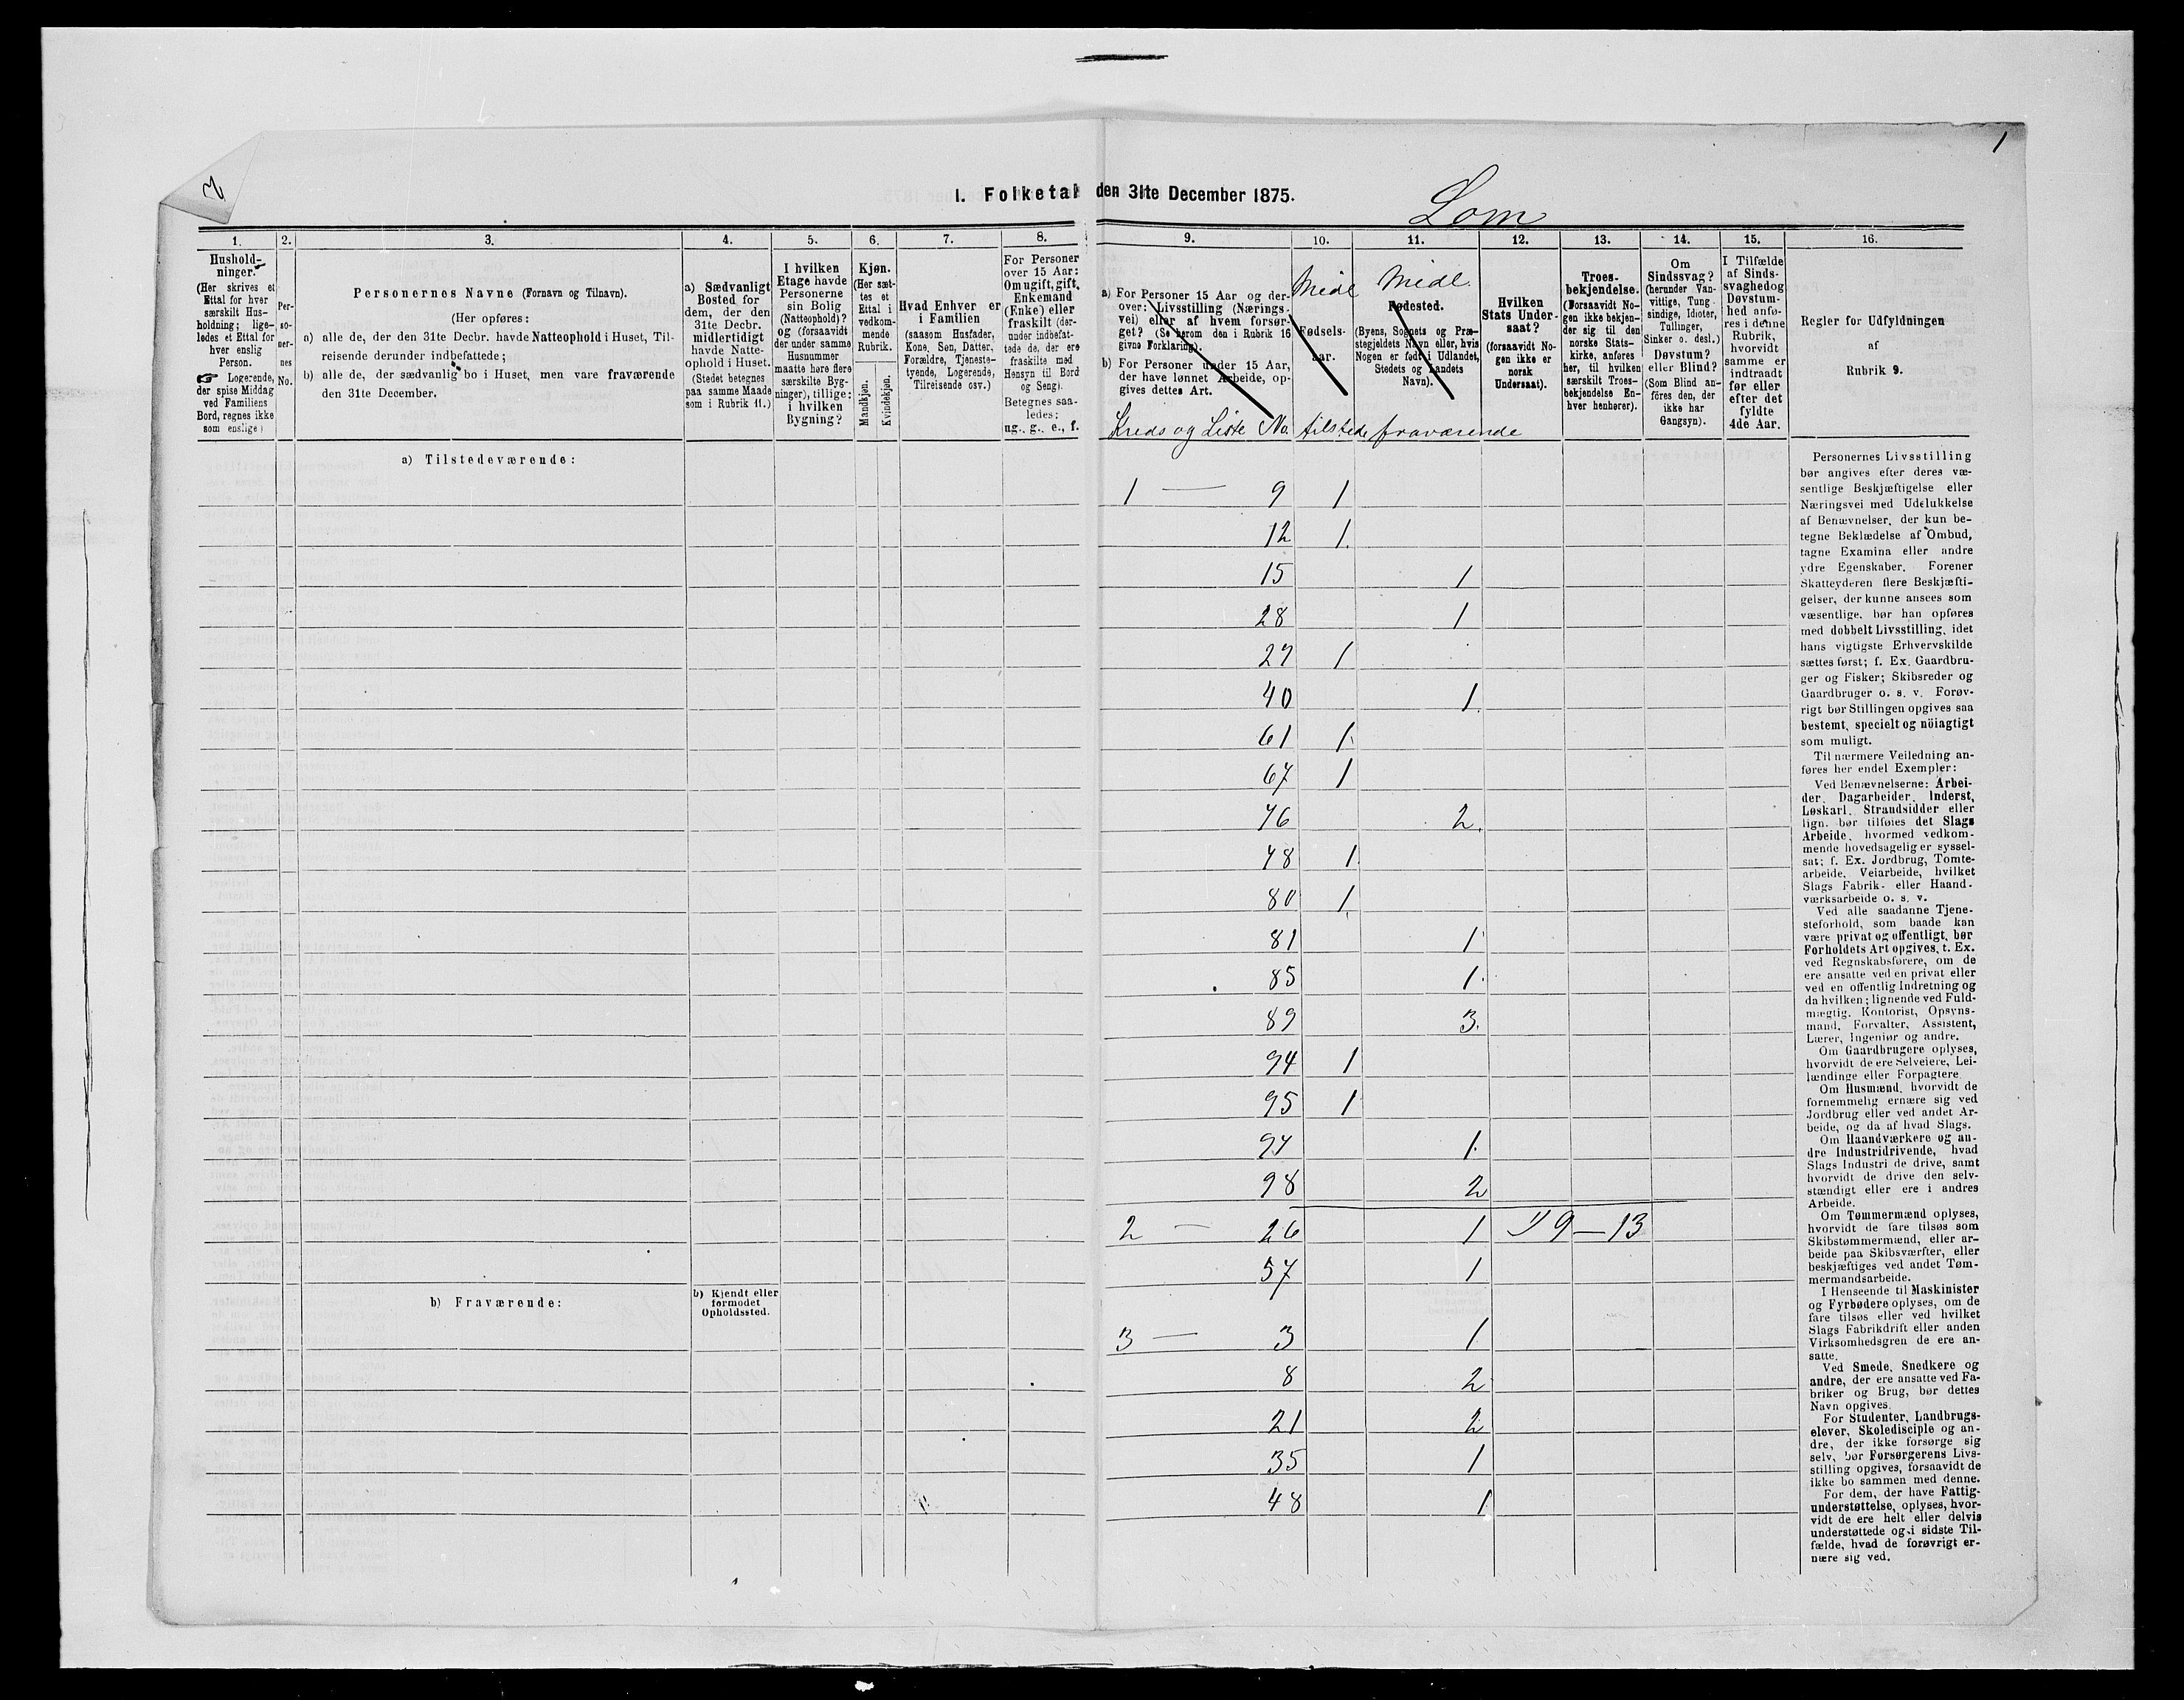 1
2
I. Folketal den 31te December 1875.
Lom
1. 2. 3. 4. 5. 6. 7. 8. 9. 10. 11. 12. 13. 14. 15. 16.
Hushold-
ninger.
(Her skrives et
Ettal for hver
særskilt Hus-
holdning; lige-
ledes et Ettal for
hver enslig
Person.
☞ Logerende,
der spise Middag
ved Familiens
Bord, regnes ikke
som enslige)
Per-
so-
ner-
nes
No.
Personernes Navne (Fornavn og Tilnavn).
(Her opføres:
a) alle de, der den 31te Decbr. havde Natteophold i Huset, Til-
reisende derunder indbefattede;
b) alle de, der sædvanlig bo i Huset, men vare fraværende
den 31te December.
a) Sædvanligt
Bosted for
dem, der den
31te Decbr.
midlertidigt
havde Natte-
ophold i Huset.
(Stedet betegnes
paa samme Maade
som i Rubrik 11.)
I hvilken
Etage havde
Personerne
sin Bolig
(Natteophold)?
og (forsaavidt
der under samme
Husnummer
maatte høre flere
særskilte Byg-
ninger), tillige:
i hvilken
Bygning?
Kjøn.
(Her sæt-
tes et
Ettal i
vedkom-
mende
Rubrik.
Mandkjøn.
Kvindekjøn.
Hvad Enhver er
i Familien
(saasom Husfader,
Kone, Søn, Datter,
Forældre, Tjeneste-
tyende, Logerende,
Tilreisende osv.)
For Personer
over 15 Aar:
Om ugift, gift,
Enkemand
(Enke) eller
fraskilt (der-
under indbefat-
tede de, der ere
fraskilte med
Hensyn til Bord
og Seng).
Betegnes saa-
ledes:
ug., g., e., f.
a) For Personer 15 Aar og der-
over: Livsstilling (Nærings-
vei) eller af hvem forsør-
get? (Se herom den i Rubrik 16
givne Forklaring).
b) For Personer under 15 Aar,
der have lønnet Arbeide, op-
gives dettes Art.
Kreds og Liste No.
Midl
Fødsels-
aar.
tilstede
Midl.
Fødested.
(Byens, Sognets og Præ-
stegjeldets Navn eller, hvis
Nogen er født i Udlandet,
Stedets og Landets
Navn).
fraværende
Hvilken
Stats Under-
saat?
(forsaavidt No-
gen ikke er
norsk
Undersaat).
Troes-
bekjendelse.
(Forsaavidt No-
gen ikke bekjen-
der sig til den
norske Stats-
kirke, anføres
her, til hvilken
særskilt Troes-
bekjendelse En-
hver henhører).
Om
Sindssvag?
(herunder Van-
vittige, Tung-
sindige, Idioter,
Tullinger,
Sinker o. desl.)
Døvstum?
eller Blind?
(Som Blind an-
föres den, der
ikke har
Gangsyn).
I Tilfælde
af Sinds-
svaghed og
Døvstum-
hed anfø-
res i denne
Rubrik,
hvorvidt
samme er
indtraadt
før eller
efter det
fyldte
4de Aar.
Regler for Udfyldningen
af
Rubrik 9.
a) Tilstedeværende:
b) Fraværende:
b) Kjendt eller
formodet
Opholdssted.
1 — 9 1
12 1.
15 1
28 1
27 1
40 1.
61 1.
67 1
76 2.
78 1.
80 1.
81 1
85 1.
89 3.
94 1
95 1
97 1.
98 2
2 — 26 1 9—13
57 1
3 — 3 1
8 2
21 2
35 1
48 1
Personernes Livsstilling
bør angives efter deres væ-
sentlige Beskjæftigelse eller
Næringsvei med Udelukkelse
af Benævnelser, der kun be-
tegne Beklædelse af Ombud,
tagne Examina eller andre
ydre Egenskaber. Forener
Skatteyderen flere Beskjæfti-
gelser, der kunne ansees som
væsentlige, bør han opføres
med dobbelt Livsstilling, idet
hans vigtigste Erhvervskilde
sættes først; f. Ex. Gaardbru-
ger og Fisker; Skibsreder og
Gaardbruger o. s. v. Forøv-
rigt bør Stillingen opgives saa
bestemt, specielt og nöiagtigt
som muligt.
Til nærmere Veiledning an-
føres her endel Exempler:
Ved Benævnelserne: Arbei-
der, Dagarbeider, Inderst,
Løskarl, Strandsidder eller
lign. bør tilføies det Slags
Arbeide, hvormed vedkom-
mende hovedsagelig er syssel-
sat; f. Ex. Jordbrug, Tomte-
arbeide, Veiarbeide, hvilket
Slags Fabrik- eller Haand-
værksarbeide o. s. v.
Ved alle saadanne Tjene-
steforhold, som baade kan
være privat og offentligt, bør
Forholdets Art opgives, t. Ex.
ved Regnskabsførere, om de
ere ansatte ved en privat eller
ved en offentlig Indretning og
da hvilken; lignende ved Fuld-
mægtig, Kontorist, Opsyns-
mand, Forvalter, Assistent,
Lærer, Ingeniør og andre.
Om Gaardbrugere oplyses,
hvorvidt de ere Selveiere, Lei-
lændinge eller Forpagtere
Om Husmænd, hvorvidt de
fornemmelig ernære sig ved
Jordbrug eller ved andet Ar-
beide, og da af hvad Slags.
Om Haandværkere og an-
dre Industridrivende, hvad
Slags Industri de drive, samt
hvorvidt de drive den selv-
stændigt eller ere i andres
Arbeide.
Om Tømmermænd oplyses,
hvorvidt de fare tilsøs som
Skibstømmermænd, eller ar-
beide paa Skibsværfter, eller
beskjæftiges ved andet Tøm-
mermandsarbeide.
I Henseende til Maskinister
og Fyrbødere oplyses, om de
fare tilsøs eller ved hvilket
Slags Fabrikdrift eller anden
Virksomhedsgren de ere an-
satte.
Ved Smede, Snedkere og
andre, der ere ansatte ved Fa-
briker og Brug, bør dettes
Navn opgives.
For Studenter, Landbrugs-
elever, Skoledisciple og an-
dre, der ikke forsørge sig
selv, bør Forsørgerens Livs-
stilling opgives, forsaavidt de
ikke bo sammen med denne.
For dem, der have Fattig-
understøttelse, oplyses, hvor-
vidt de ere helt eller delvis
understøttede og i sidste Til-
fælde, hvad de forøvrigt er-
nære sig ved.